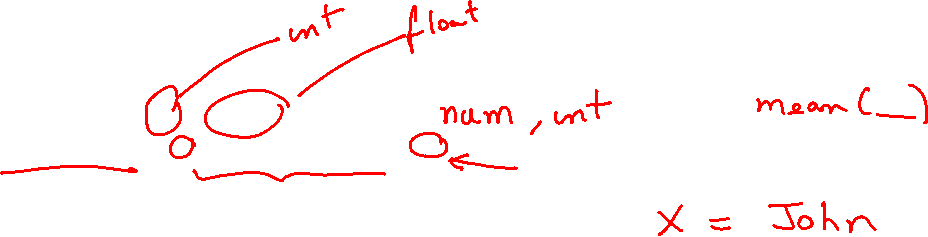 int float
num, int mean(__)
X = John